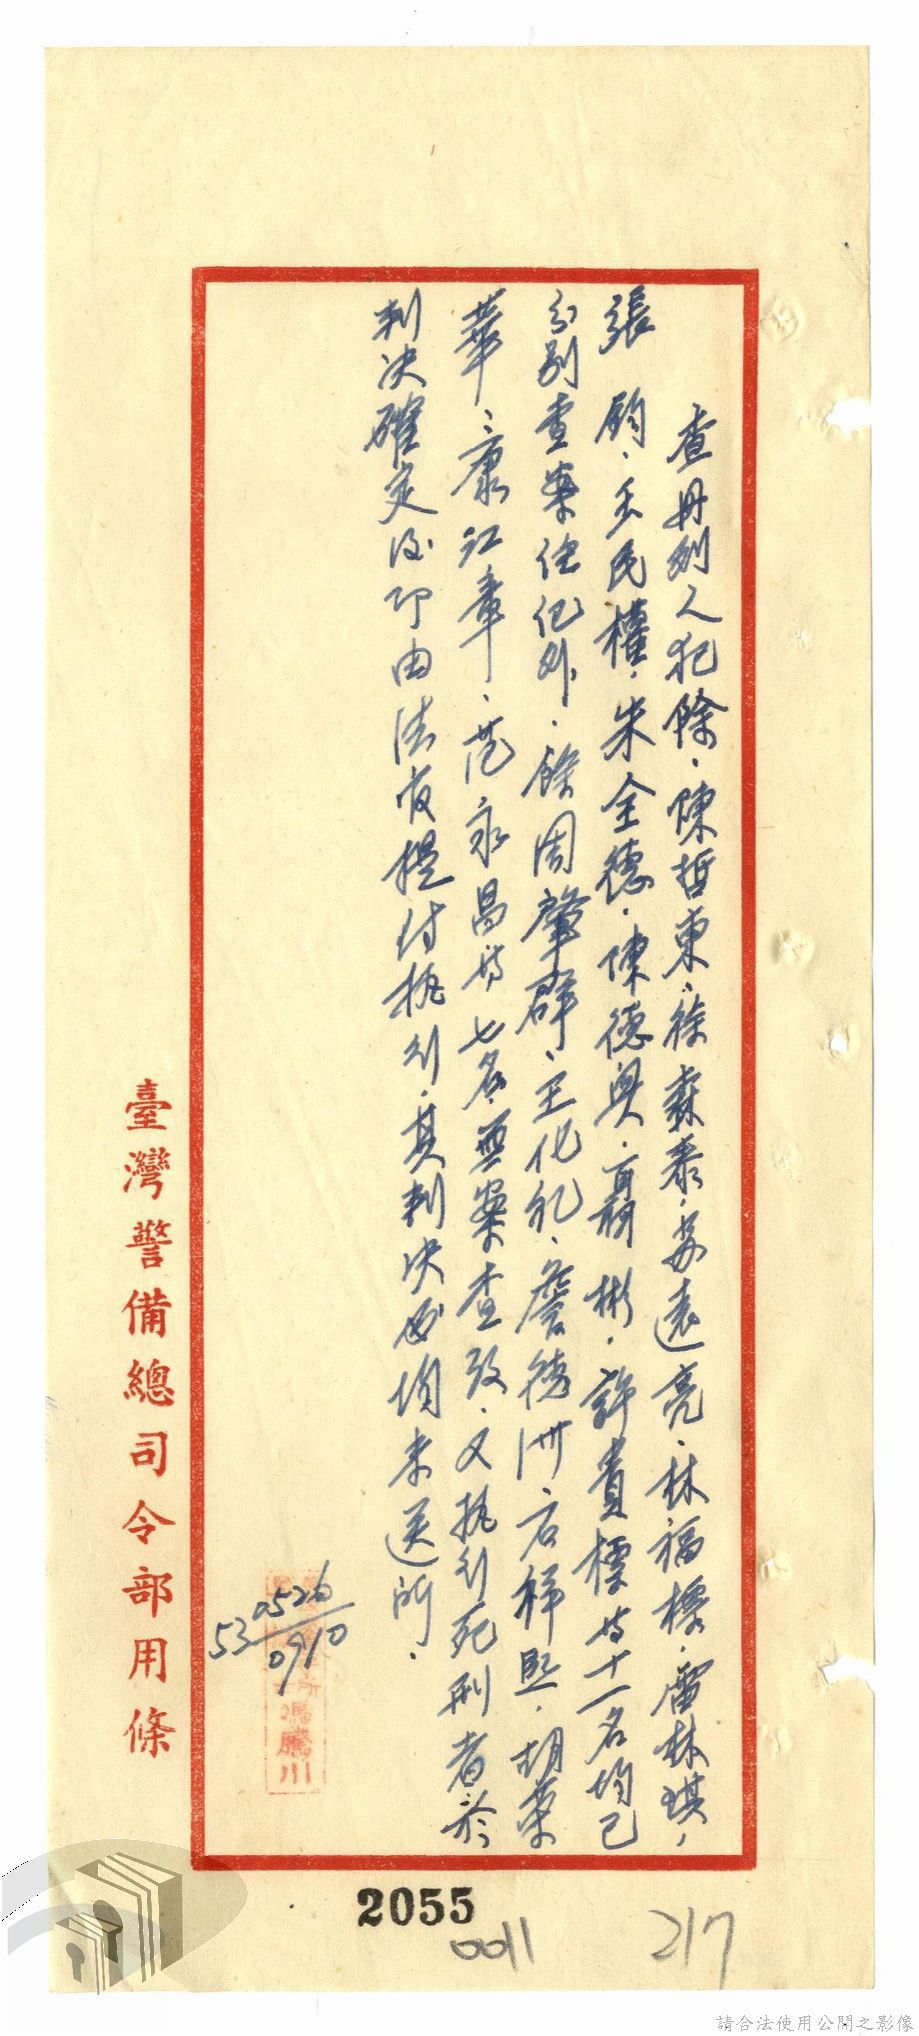 查冊列人犯除、陳哲東、徐森泰、安遠亮、林福標、雷林琪、
張鈞、王民權、朱全德、陳德興、聶彬、許貴標等十一名均已
分別查案註記外、餘周肇群、王化礼、詹德洲、石稀熙、胡榮
華、康江章、范永昌等七名無案查攷、又执行死刑者於
判决確定后即由法官提付执行、其判决书均未送所、
530526/0910
馮騰川
臺灣警備總司令部用條
2055
0011
217
請合法使用公開之影像